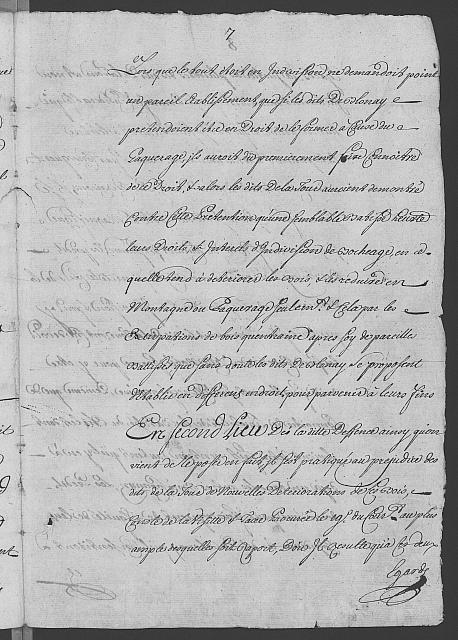 7
Lors que le tout étoit en Indivission, ne demandoit point
un pareil établissement, que si les dits De
pretendoient être en Droit de le former à Cause du
Paquerage, ils auroit dû premierement faire Connoître
de ce Droit, & alors les dits De la Joux auroient demontré
Contre Cette Pretention qu'une semblable Batisse
leurs Droits, & Interets d'Indivision de Bocheage, en ce
quelle tend à deteriorer les Bois & les réduire en
Montagne du Paquerage seulem.t & Cela par les
Extirpations de bois qu'entraine apres soy de pareilles
Batisses que sans doute les dits De se proposent
d'établir en different endroit, pour parvenir à leurs fins
En second lieu Dès la ditte Deffence ainsy qu'on
vient de le poser en fait, il s'est pratiqué au prejudice des
dits de la Joux de Nouvelles Deteriorations de Ces Bois,
du
amples desquelles soit Raport, Donc Il Resulte qu'a Ces deux
Egards